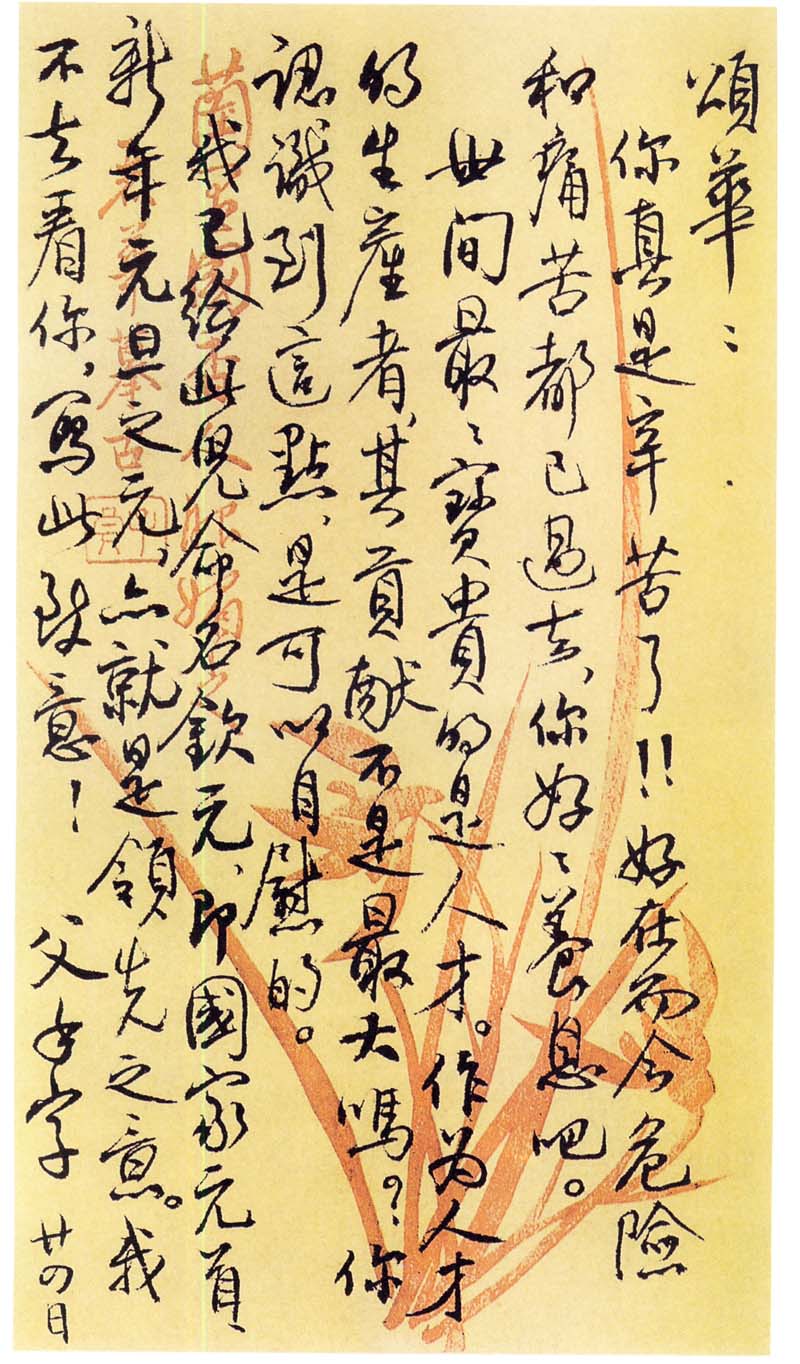 頌華:
你真是辛苦了!!好在而今危險
和痛苦都已過去,你好〻養息吧。
世间最〻寶貴的是人才。作为人才
的生產者,其貢献不是最大嗎?你
認識到這點,是可以自慰的。
我已给此児命名欽元,即國家元首、
新年元旦之元,亦就是領先之意。我
不去看你,寫此致意!
父手字 廿四日